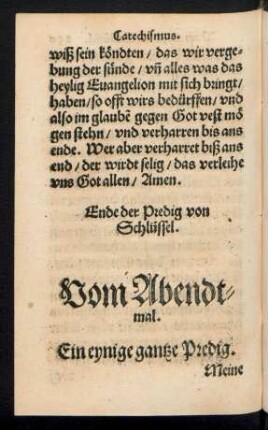 Catechismus.
wiß sein köndten / das wir verge-
bung der sünde / vñ alles was das
heylig Euangelion mit sich bringt /
haben / so offt wirs bedürffen / vnd
also im glaubẽ gegen Got vest mö
gen stehn / vnd verharren bis ans
ende. Wer aber verharret biß ans
end / der wirdt selig / das verleihe
vns Got allen / Amen.
Ende der Predig von
Schlüssel.
Vom Abendt-
mal.
Ein eynige gantze Predig.
Meine